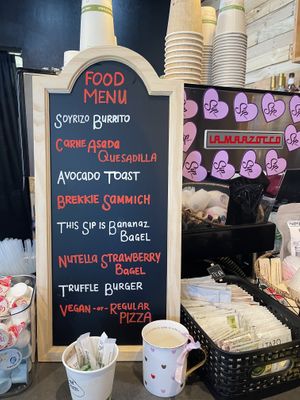 FOOD
MENU
SOYRIZO BURRITO
CARNE ASADA
QUESADILLA
AVOCADO TOAST
BREKKIE SAMMICH
THIS SIP IS BANANAZ
BAGEL
NUTELLA STRAWBERRY
BAGEL
TRUFFLE BURGER
VEGAN -OR- REGULAR
PIZZA
LA MARZOCCO